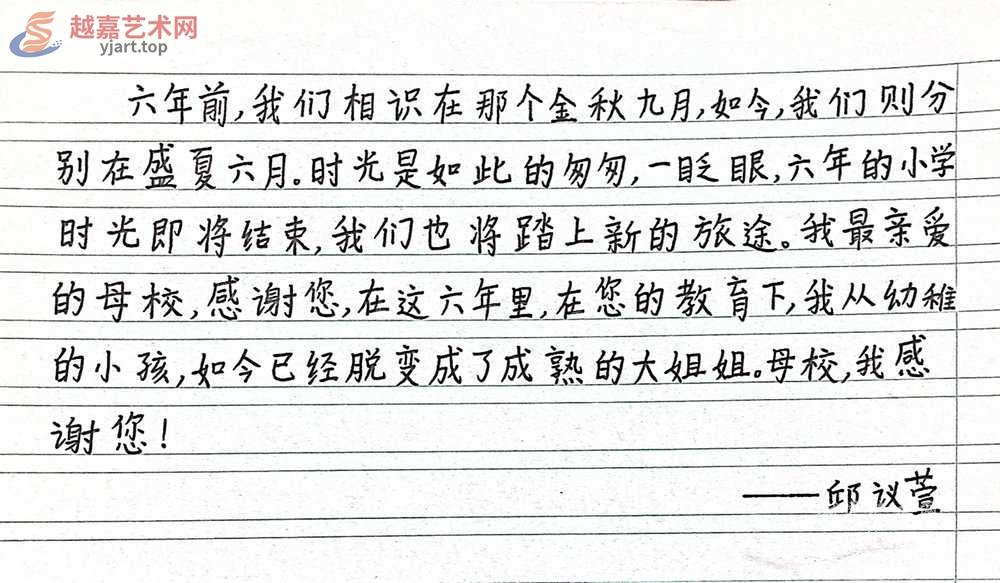 越嘉艺术网
yjart.top
六年前,我们相识在那个金秋九月,如今,我们则分
别在盛夏六月。时光是如此的匆匆,一眨眼,六年的小学
时光即将结束,我们也将踏上新的旅途。我最亲爱
的母校,感谢您,在这六年里,在您的教育下,我从幼稚
的小孩,如今已经脱变成了成熟的大姐姐。母校,我感
谢您!
——邱议萱